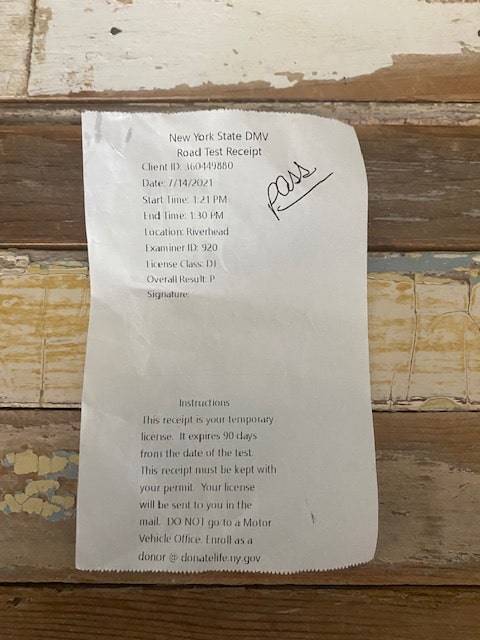 New York State DMV
Road Test Receipt
Client ID: 360449880
Date: 7/14/2021
Start Time: 1:21 PM
End Time: 1:30 PM
Location: Riverhead
Examiner ID: 920
License Class: DJ
Overall Result: P
Signature:
pass
Instructions
This receipt is your temporary
license. It expires 90 days
from the date of the test.
This receipt must be kept with
your permit. Your license
will be sent to you in the
mail. DO NOT go to a Motor
Vehicle Office. Enroll as a
donor @ donatelife.ny.gov